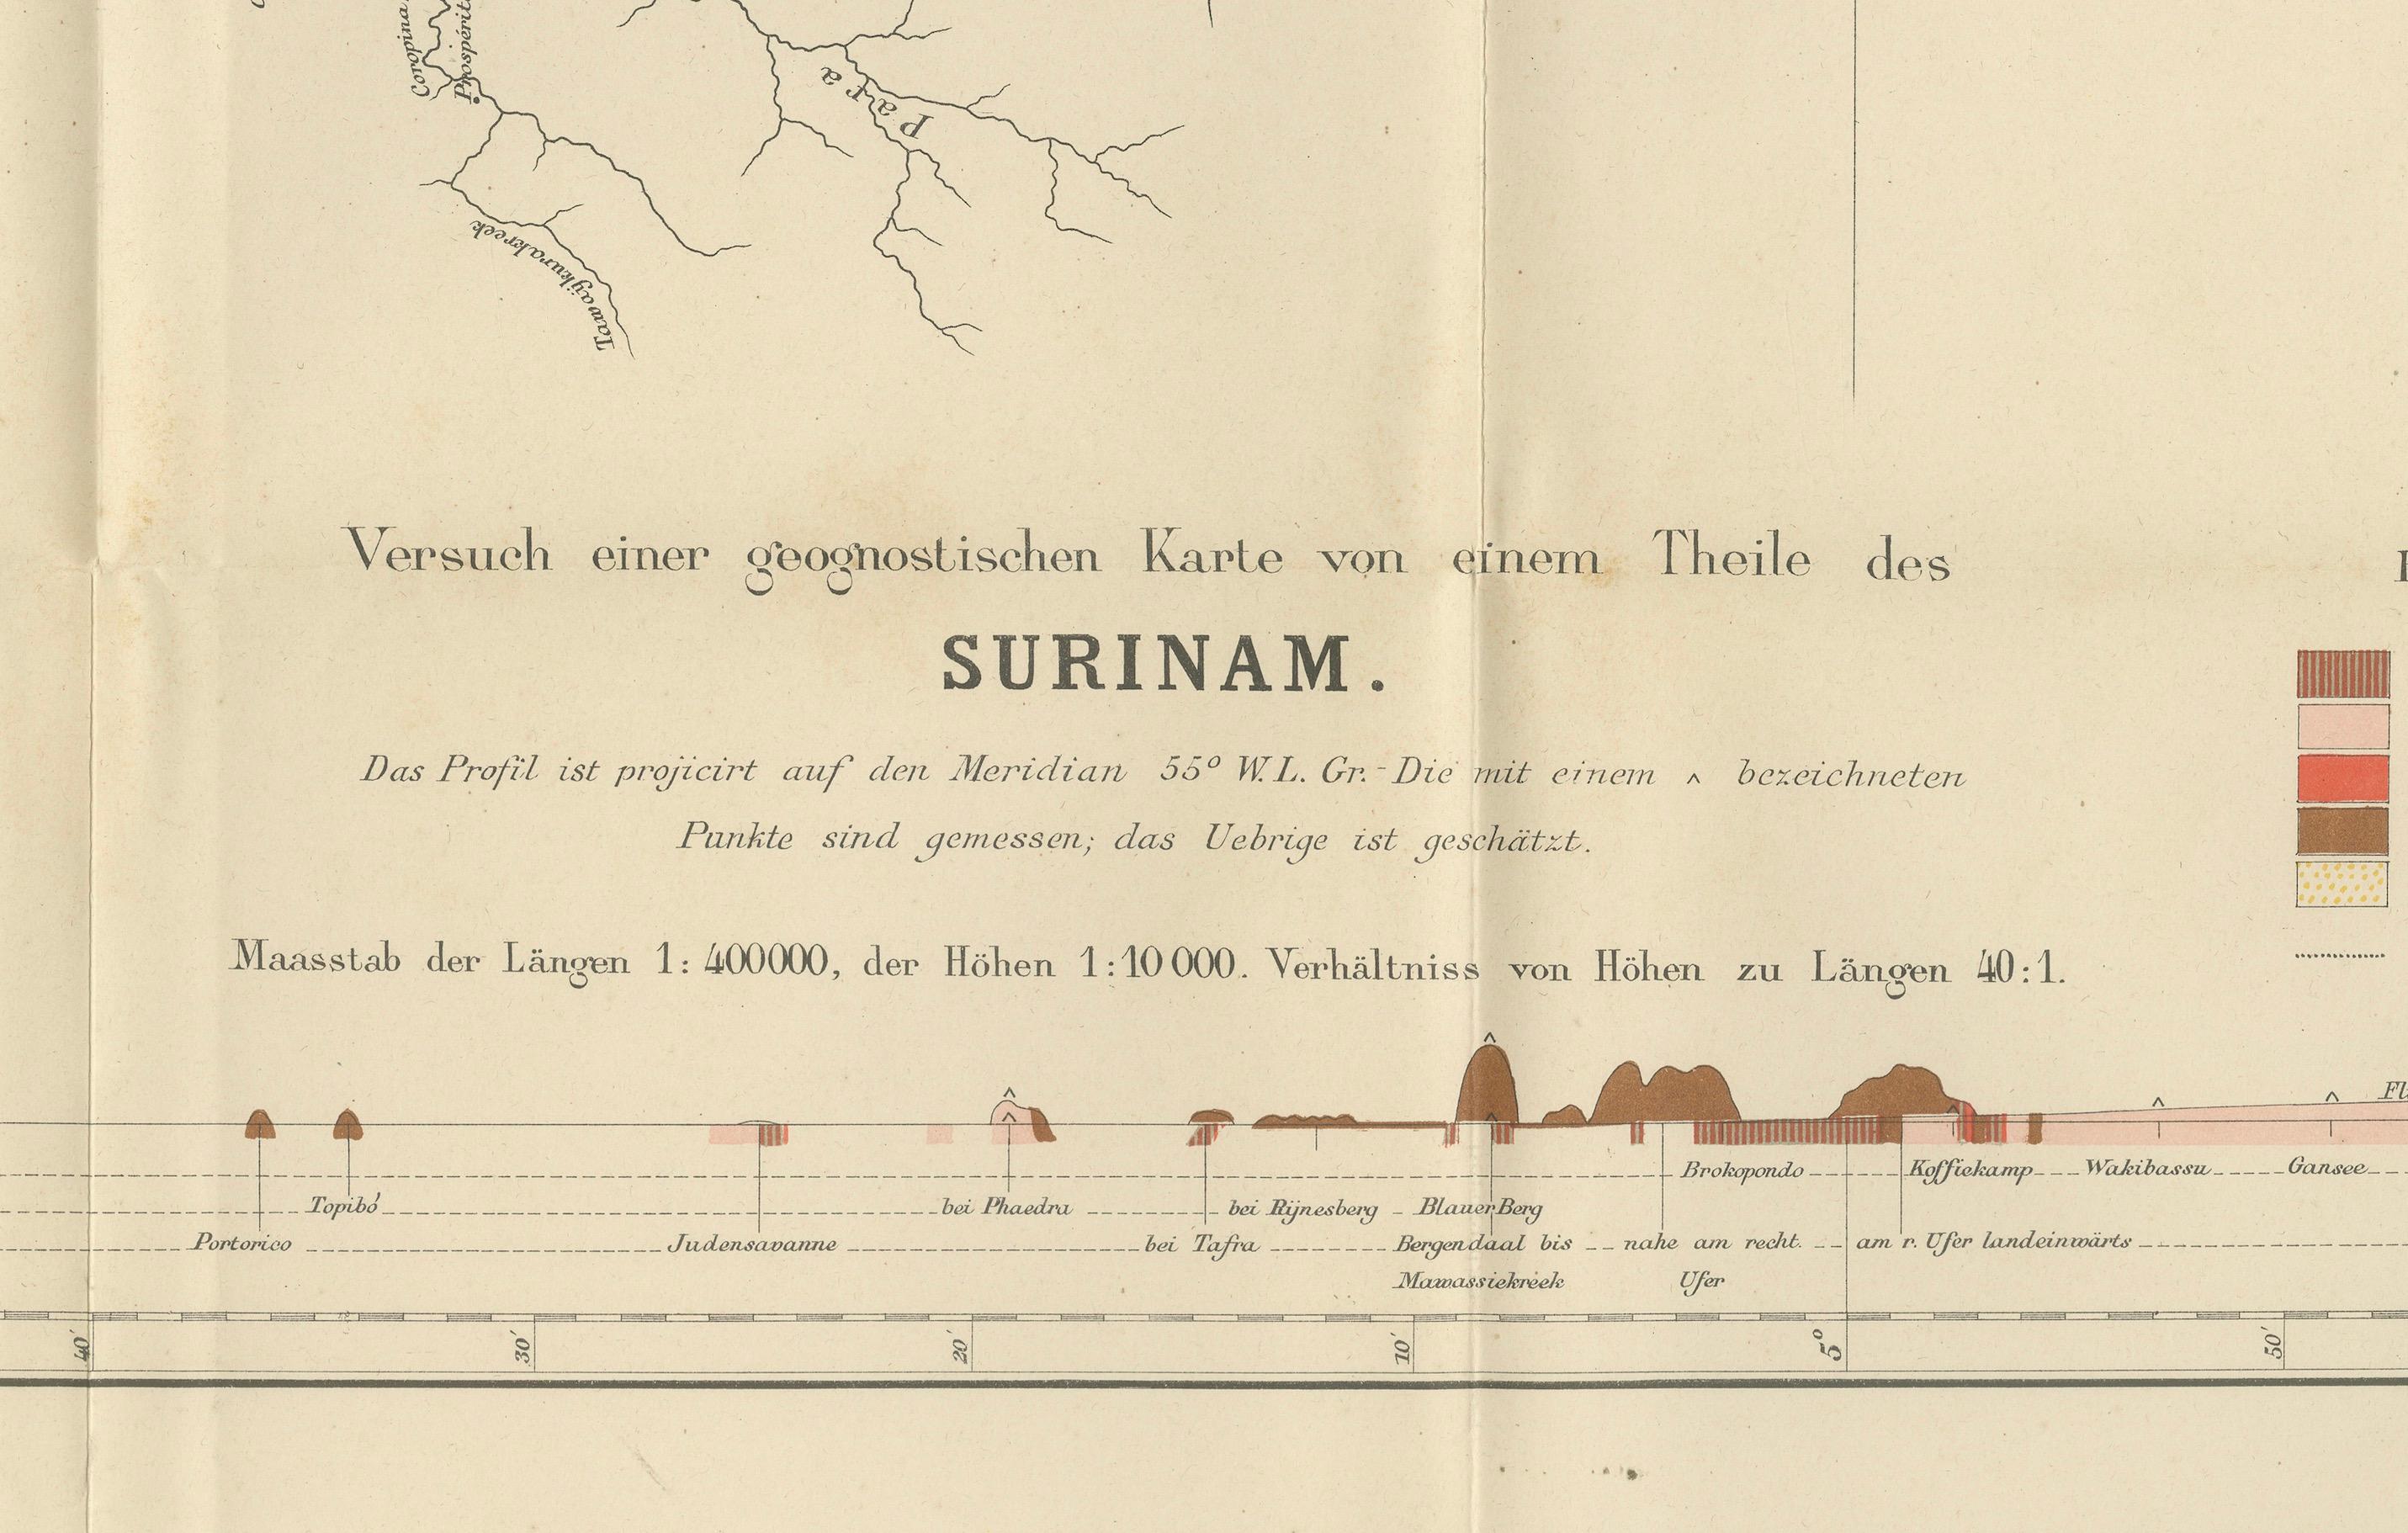 Coropina
Prospérit
Para
Tawaÿkurakreek
Versuch einer geognostischen Karte von einem Theile des
SURINAM.
Das Profil ist projicirt auf den Meridian 55° W. L. Gr. - Die mit einem ^ bezeichneten
Punkte sind gemessen; das Uebrige ist geschätzt.
Maasstab der Längen 1: 400000, der Höhen 1:10 000. Verhältniss von Höhen zu Längen 40:1.
Fl
Brokopondo Koffiekamp Wakibassu Gansee
Topibó bei Phaedra bei Rijnesberg Blauer Berg
Portorico Judensavanne bei Tafra Bergendaal bis nahe am recht. am r. Ufer landeinwärts
Mawassiekreek Ufer
40' 30' 20' 10' 5° 50'